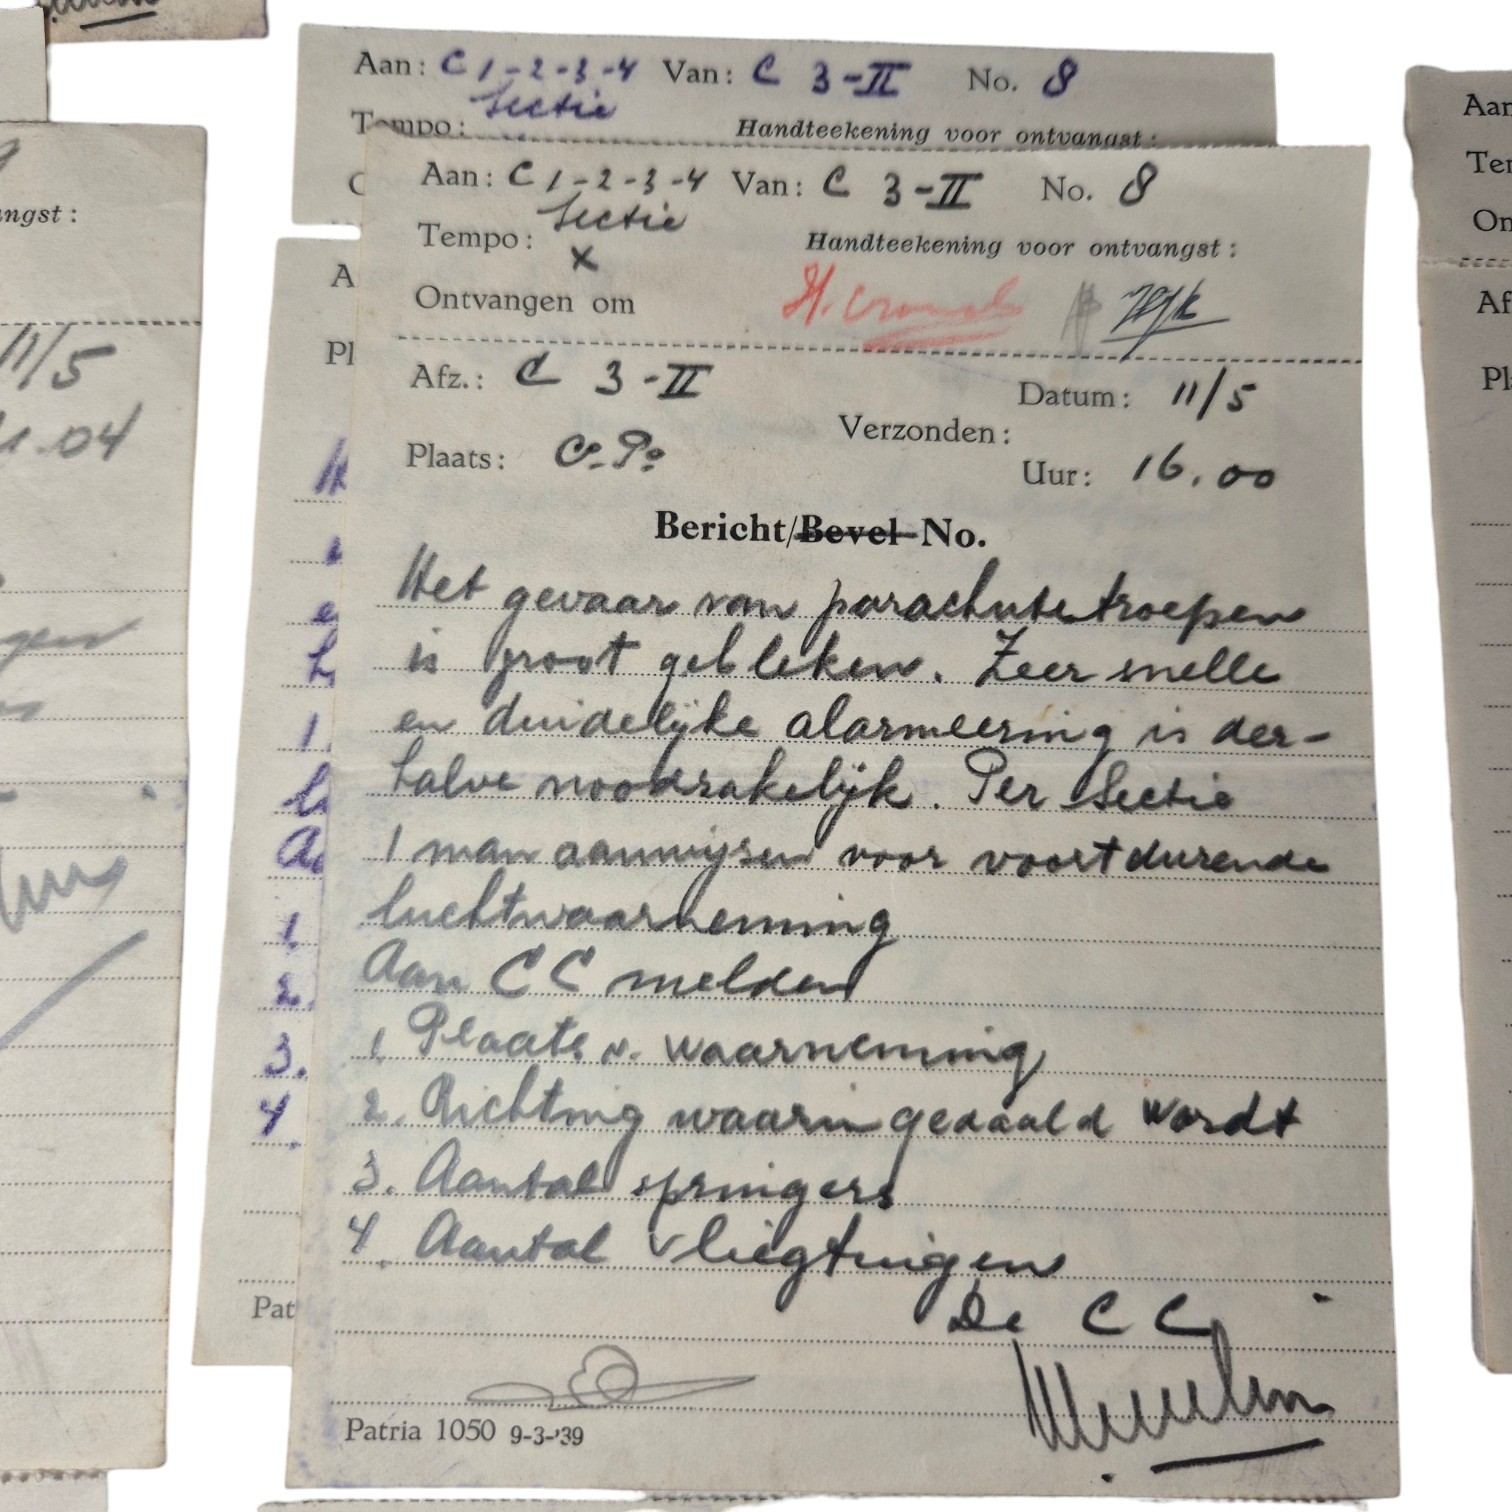 Aan: C 1-2-3-4 Van: C 3-II No. 8
Sectie
Tempo: Handteekening voor ontvangst:
Aan: C 1-2-3-4 Van: C 3-II No. 8
Sectie
Tempo: x Handteekening voor ontvangst:
Ontvangen om
Afz.: C 3-II Datum: 11/5
Verzonden:
Plaats: C.P. Uur: 16.00
Bericht/Bevel No.
Het gevaar van parachutetroepen
is groot gebleken. Zeer snelle
en duidelijke alarmeering is der-
halve noodzakelijk. Per Sectie
1 man aanwijzen voor voortdurende
luchtwaarneming
Aan CC melden
1. Plaats v. waarneming
2. Richting waarin gedaald wordt
3. Aantal springers
4. Aantal vliegtuigen
De CC
Patria 1050 9-3-'39
angst:
11/5
1.04
A
Pl
1.
2.
3.
4.
Pat
Aan
Ter
On
Af
Pl